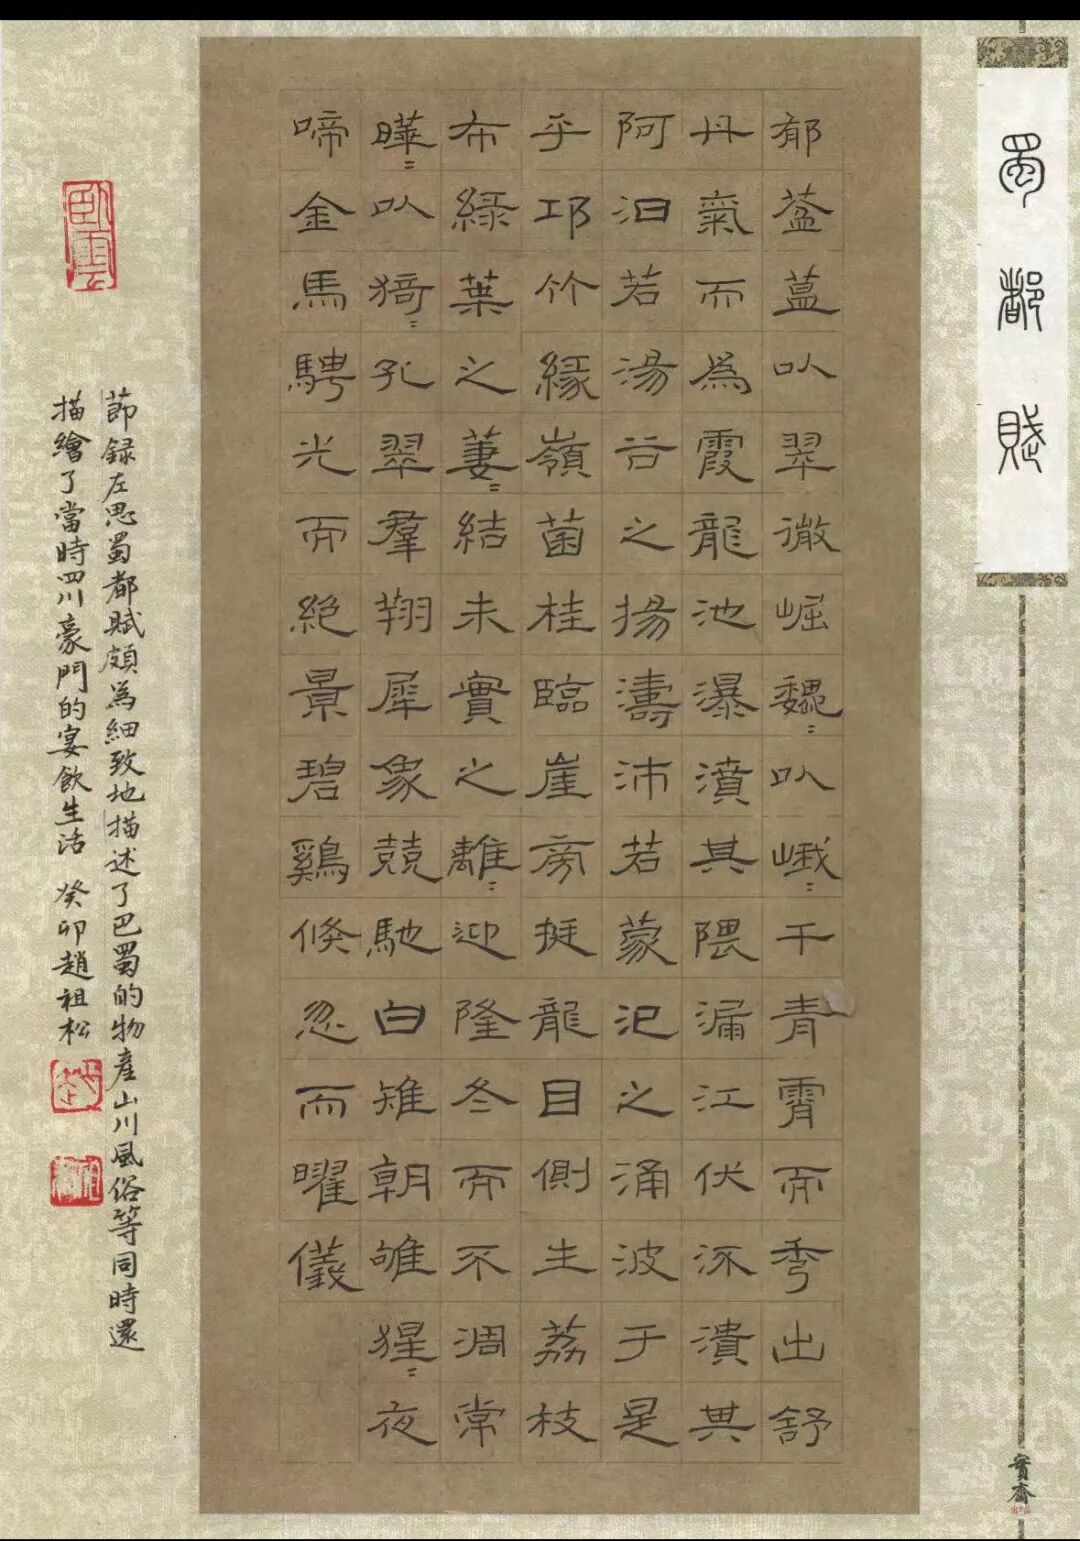 蜀都賦
郁葐蒀以翠微崛巍〻以峨〻干青霄而秀出舒
丹氣而為霞龍池瀑濆其隈漏江伏流潰其
阿汩若湯谷之揚濤沛若蒙汜之涌波于是
乎邛竹緣嶺菌桂臨崖旁挺龍目側生荔枝
布緑葉之萋〻結朱實之離〻迎隆冬而不凋常
曄〻以猗〻孔翠羣翔犀象競馳白雉朝雊猩〻夜
啼金馬騁光而絕景碧鷄倏忽而曜儀
節録左思蜀都賦頗為細致地描述了巴蜀的物產山川風俗等同時還
描繪了當時四川豪門的宴飲生活 癸卯趙祖松
臥雲